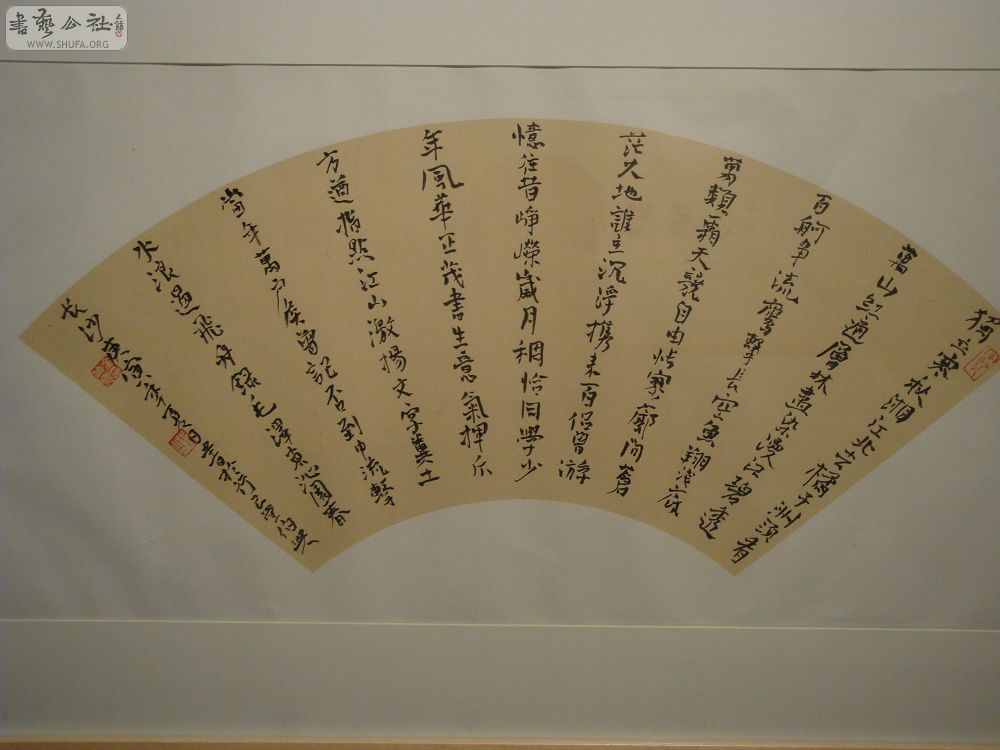 書藝公社
WWW.SHUFA.ORG
獨立寒秋湘江北去橘子洲頭看
萬山紅遍層林盡染漫江碧透
百舸争流鷹擊長空魚翔淺底
萬類霜天競自由悵寥廓問蒼
茫大地誰主沉浮携来百侣曾游
憶往昔崢嶸歲月稠恰同學少
年風華正茂書生意氣揮斥
方遒指點江山激揚文字糞土
當年萬户侯曾記否到中流擊
水浪遏飛舟錄毛澤東沁園春
长沙庚寅年夏日書於行己